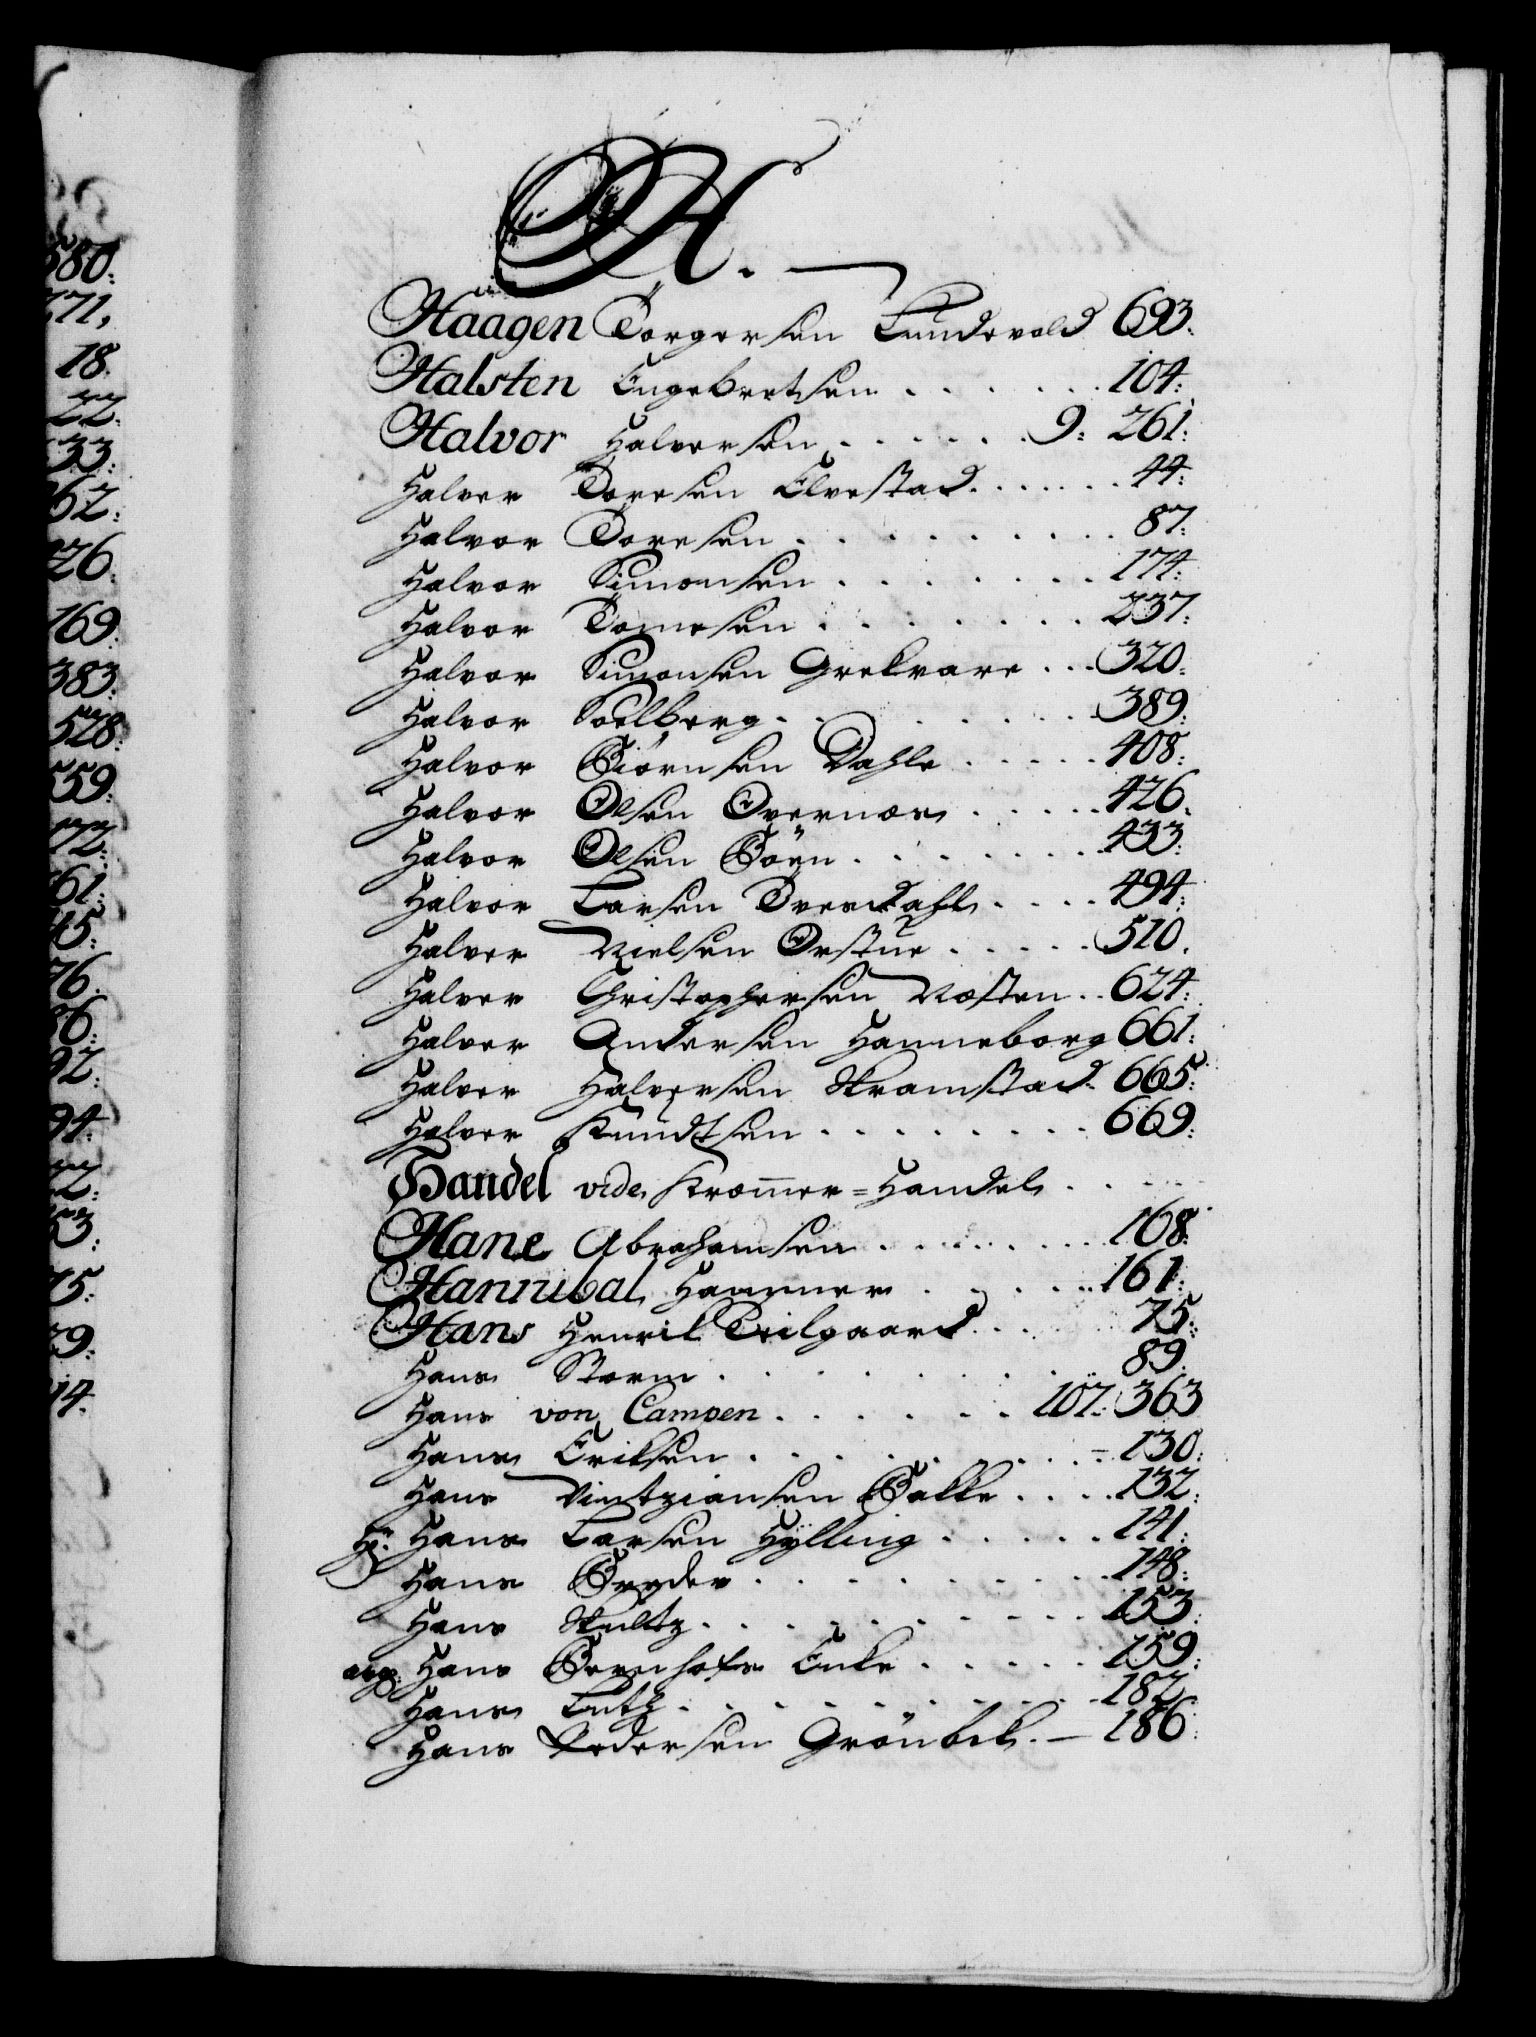 580:
771,
18.
22:
33:
62:
226:
169.
383.
528:
559.
72:
61:
45:
76.
26:
92:
94:
2:
53:
75:
29:
14.
H.
Haagen Torgersen Lundevold 693:
Halsten Engebretsen . . . . . . 104:
Halvor Halvorsen . . . . . . 9: 261:
Halvor Toresen Elvestad . . . . . . 44:
Halvor Toresen . . . . . . . . . 87:
Halvor Simonsen . . . . . . . 174:
Halvor Tomesen . . . . . . . 237:
Halvor Simonsen Grekvare . . . 320:
Halvor Soelberg . . . . . . . 389:
Halvor Biørnsen Dahle . . . . . 408:
Halvor Olsen Overnæs . . . . . 426.
Halvor Olsen Böen . . . . . . . 433:
Halvor Larsen Tverdahl . . . . 494:
Halvor Nielsen Orstue . . . . . 510.
Halvor Christophersen Næsten . . 624:
Halvor Andersen Hanneborg 661:
Halvor Halvorsen Skramstad 665:
Halvor Knudtsen . . . . . . . . 669:
Handel vide Kramer=Handel . . . .
Hane Abrahamsen . . . . . . . 168:
Hannibal Hammer . . . . . . 161:
Hans Henrik Teilgaard . . . . 75:
Hans Storm . . . . . . . . . 89:
Hans von Campen . . . . . . 107: 363
Hans Eriksen . . . . . . . . = 130:
Hans Vintziansen Bakke . . . . 132:
Hr: Hans Larsen Hylling . . . . . 141:
Hans Bryder . . . . . . . . . 148:
Hans Skultz . . . . . . . . . 153:
avg: Hans Bernhofts Enke . . . . . 159:
Hans Lutz . . . . . . . . . . 182:
Hans Pedersen Grönbek. — 186: